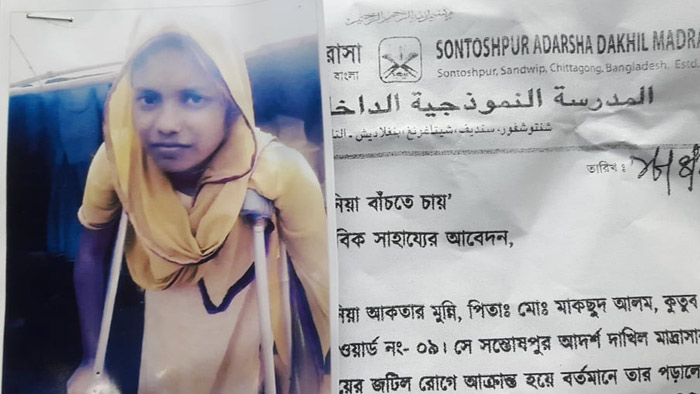 রাসা
বাংলা
SONTOSHPUR ADARSHA DAKHIL MADRA
Sontoshpur, Sandwip, Chittagong, Bangladesh, Estd.
المدرسة النموذجية الداخ
شنتوشفور، سنديف، شيتاغرنغ، بنغلاديش
তারিখ :
নিয়া বাঁচতে চায়'
বিক সাহায্যের আবেদন,
নিয়া আকতার মুন্নি, পিতাঃ মোঃ মাকছুদ আলম, কুতুব
ওয়ার্ড নং- ০৯। সে সন্তোষপুর আদর্শ দাখিল মাদ্রাসা
য়ের জটিল রোগে আক্রান্ত হয়ে বর্তমানে তার পড়ালে